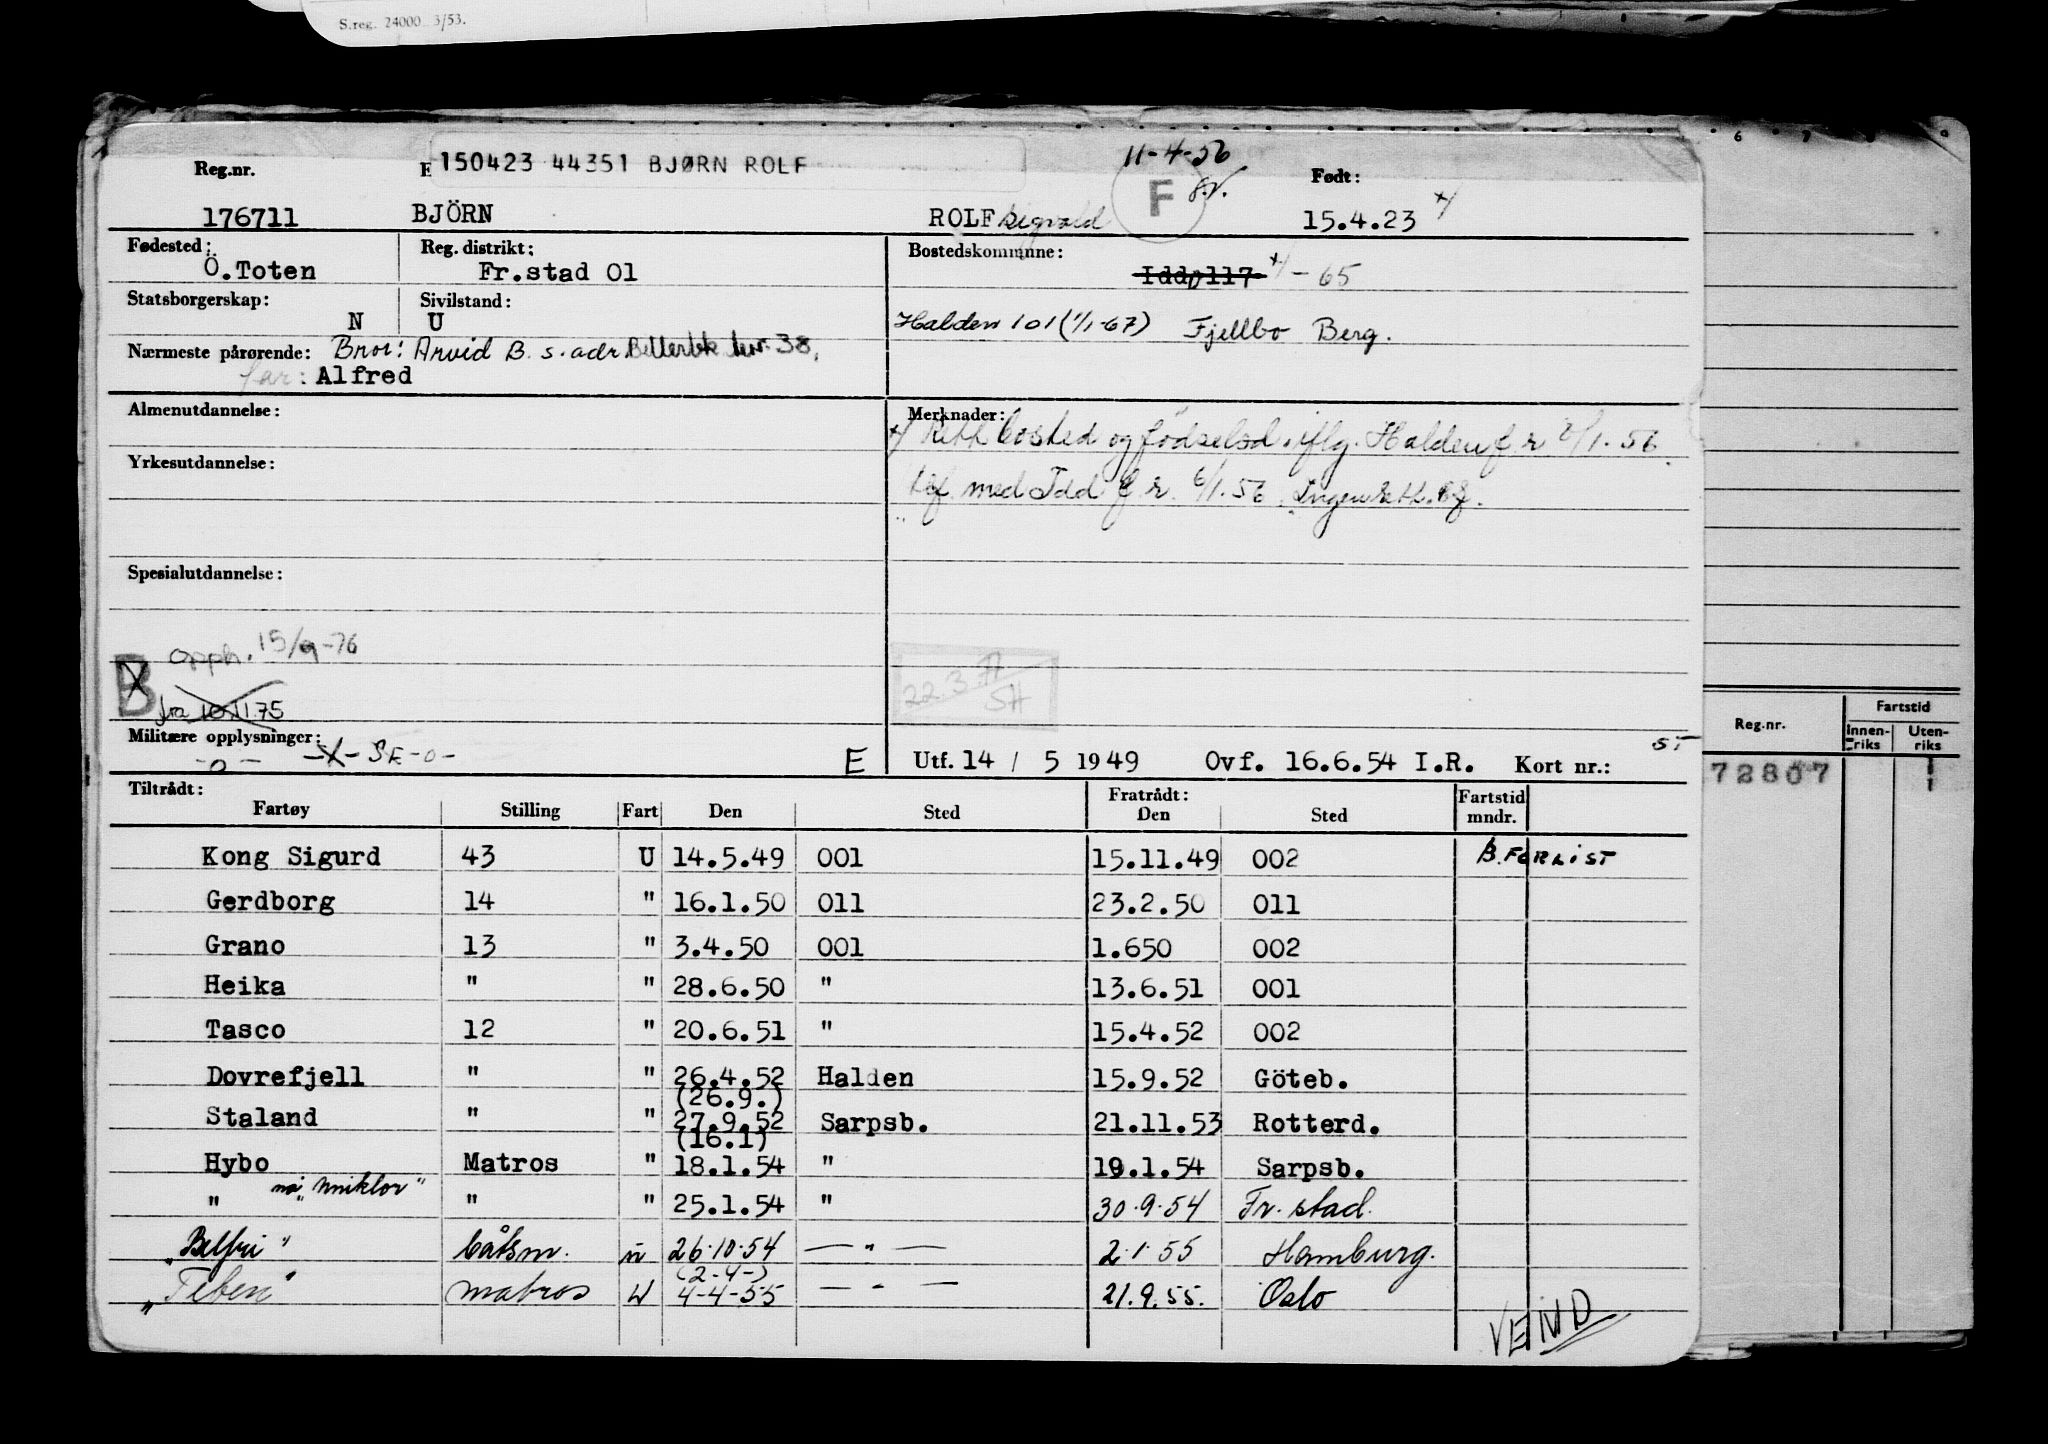 S.reg. 24000 3/53.
6 7 8 9
11-4-56
Reg.nr. E 150423 44351 BJØRN ROLF F Født:
176711 BJÖRN ROLF Sigvald 15.4.23 x/
Fødested: Reg. distrikt: Bostedskommune:
Ö.Toten Fr.stad 01 Idd 0117 x/ - 65
Statsborgerskap: Sivilstand:
N U Halden 101 (1/1-67) Fjellbo Berg.
Nærmeste pårørende: Bror: Arvid B. s. adr. 38,
far: Alfred
Almenutdannelse: Merknader:
x/ Rett bosted og födselsd. iflg. Halden f.r. /1.56
Yrkesutdannelse:
med Idd f.r. 6/1.56. Ingen
Spesialutdannelse:
opph. 15/9-76
B
fra 10.11.75
22.3.77
SH
Militære opplysninger: -X- SE-0-
-0- E Utf. 14 / 5 1949 Ovf. 16.6.54 I.R. Kort nr.:
ST
Reg.nr. Fartstid
Innen-riks Uten-riks
72807 1
Tiltrådt: Fratrådt: Fartstid
Fartøy Stilling Fart Den Sted Den Sted mndr.
Kong Sigurd 43 U 14.5.49 001 15.11.49 002 B. FORLIST
Gerdborg 14 " 16.1.50 011 23.2.50 011
Grano 13 " 3.4.50 001 1.650 002
Heika " " 28.6.50 " 13.6.51 001
Tasco 12 " 20.6.51 " 15.4.52 002
Dovrefjell " " 26.4.52 Halden 15.9.52 Göteb.
(26.9.)
Staland " " 27.9.52 Sarpsb. 21.11.53 Rotterd.
(16.1)
Hybo Matros " 18.1.54 " 19.1.54 Sarpsb.
" nå "Uniklor" " " 25.1.54 " 30.9.54 Fr. stad.
"Belfri" båtsm. u 26.10.54 — " — 2.1.55 Hamburg.
(2-4-)
"Teben" matros U 4-4-55 — " — 21.9.55. Oslo
VEND